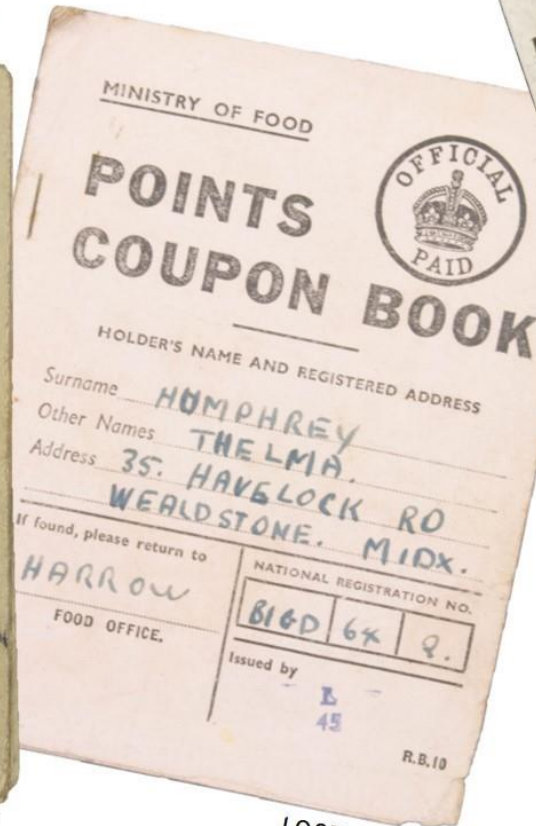 MINISTRY OF FOOD
OFFICIAL
PAID
POINTS
COUPON BOOK
HOLDER'S NAME AND REGISTERED ADDRESS
Surname HUMPHREY
Other Names THELMA.
Address 35. HAVELOCK RD
WEALDSTONE. MIDX.
If found, please return to
HARROW
FOOD OFFICE.
NATIONAL REGISTRATION NO.
64
Issued by
45
R.B.10